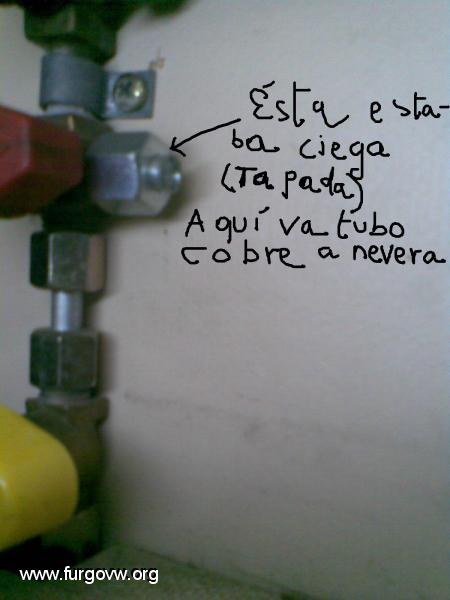 Ésta esta-
ba ciega
(Tapada)
Aquí va tubo
cobre a nevera
www.furgovw.org